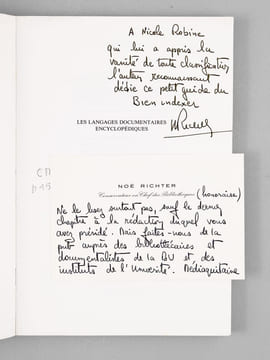 A Nicole Robine
qui lui a appris la
vanité de toute classification
l'auteur reconnaissant
dédie ce petit guide du
Bien indexer
LES LANGAGES DOCUMENTAIRES
ENCYCLOPÉDIQUES
NOË RICHTER
Conservateur en Chef des Bibliothèques (honoraire)
Ne le lisez surtout pas, sauf le dernier
chapitre à la rédaction duquel vous
avez présidé. Mais faites-nous de la
pub auprès des bibliothécaires et
documentalistes de la BU et des
instituts de l'Université.